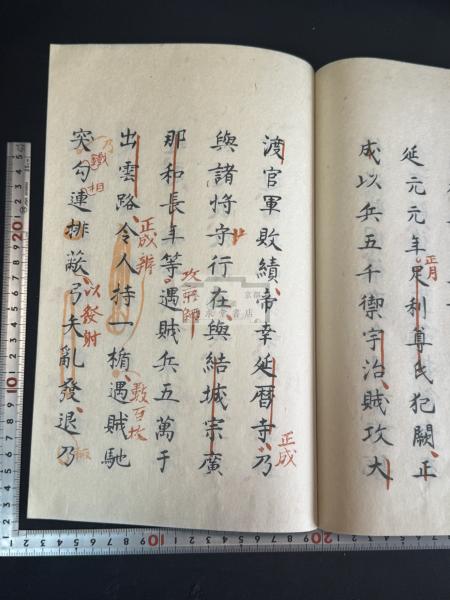 延元元年足利尊氏犯闕正
正月
成以兵五千禦宇治賊攻大
渡官軍敗績帝幸延暦寺乃
正成
與諸将守行在與結城宗廣
那和長年等遇賊兵五萬于
出雲路令人持一楯遇賊馳
正成
數百枚
突勾連排蔽弓矢亂發退乃
乃
鐵
以發射